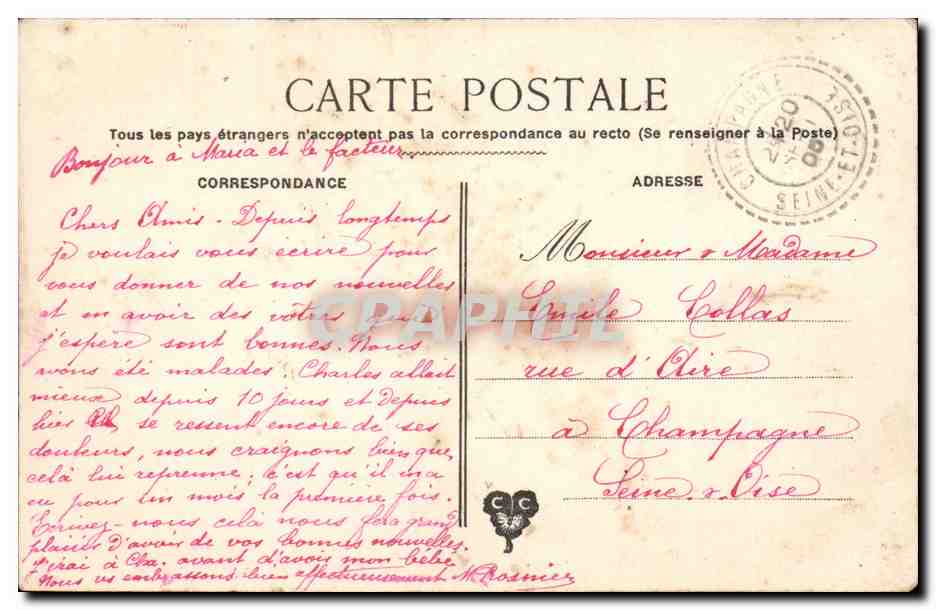 CARTE POSTALE
Tous les pays étrangers n'acceptent pas la correspondance au recto (Se renseigner à la Poste)
Bonjour à Maria et le facteur.
CORRESPONDANCE
Chers Amis - Depuis longtemps
je voulais vous écrire pour
vous donner de nos nouvelles
et en avoir des vôtres que
j'espère sont bonnes. Nous
avons été malades Charles allait
mieux depuis 10 jours et Depuis
hier il se ressent encore de ses
douleurs, nous craignons bien que
celà lui reprenne, c'est qu'il en a
eu pour un mois la première fois.
Ecrivez-nous celà nous fera grand
plaisir D'avoir de vos bonnes nouvelles.
J'irai à Cha. avant d'avoir mon bébé
Nous vs embrassons bien affectueusement M. Rosnier
ADRESSE
Monsieur & Madame
Emile Collas
rue d'Aire
à Champagne
Seine & Oise
CHAMPAGNE
20
05
SEINE-ET-OISE
C C
CPAPHIL